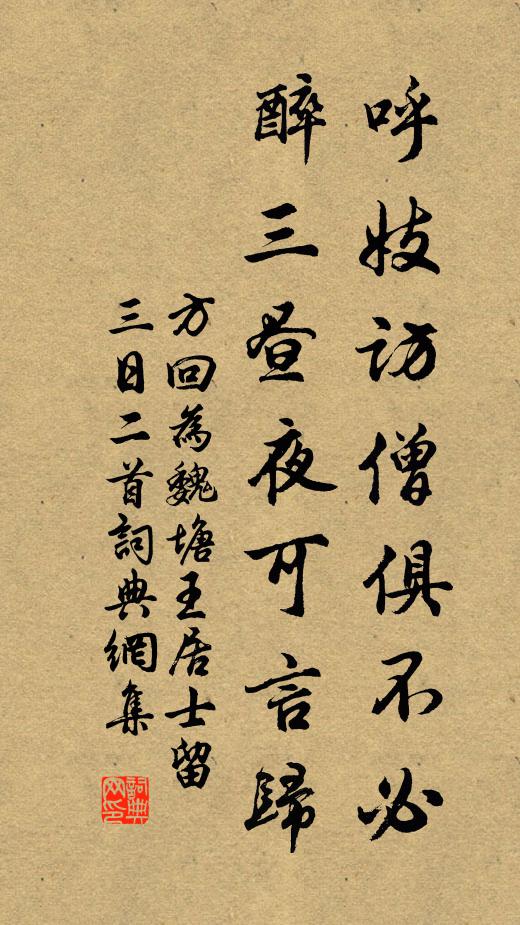 呼妓訪僧俱不必
醉三昼夜可言歸
方回為魏塘王居士留
三日二首詞典網集
詞典
网印